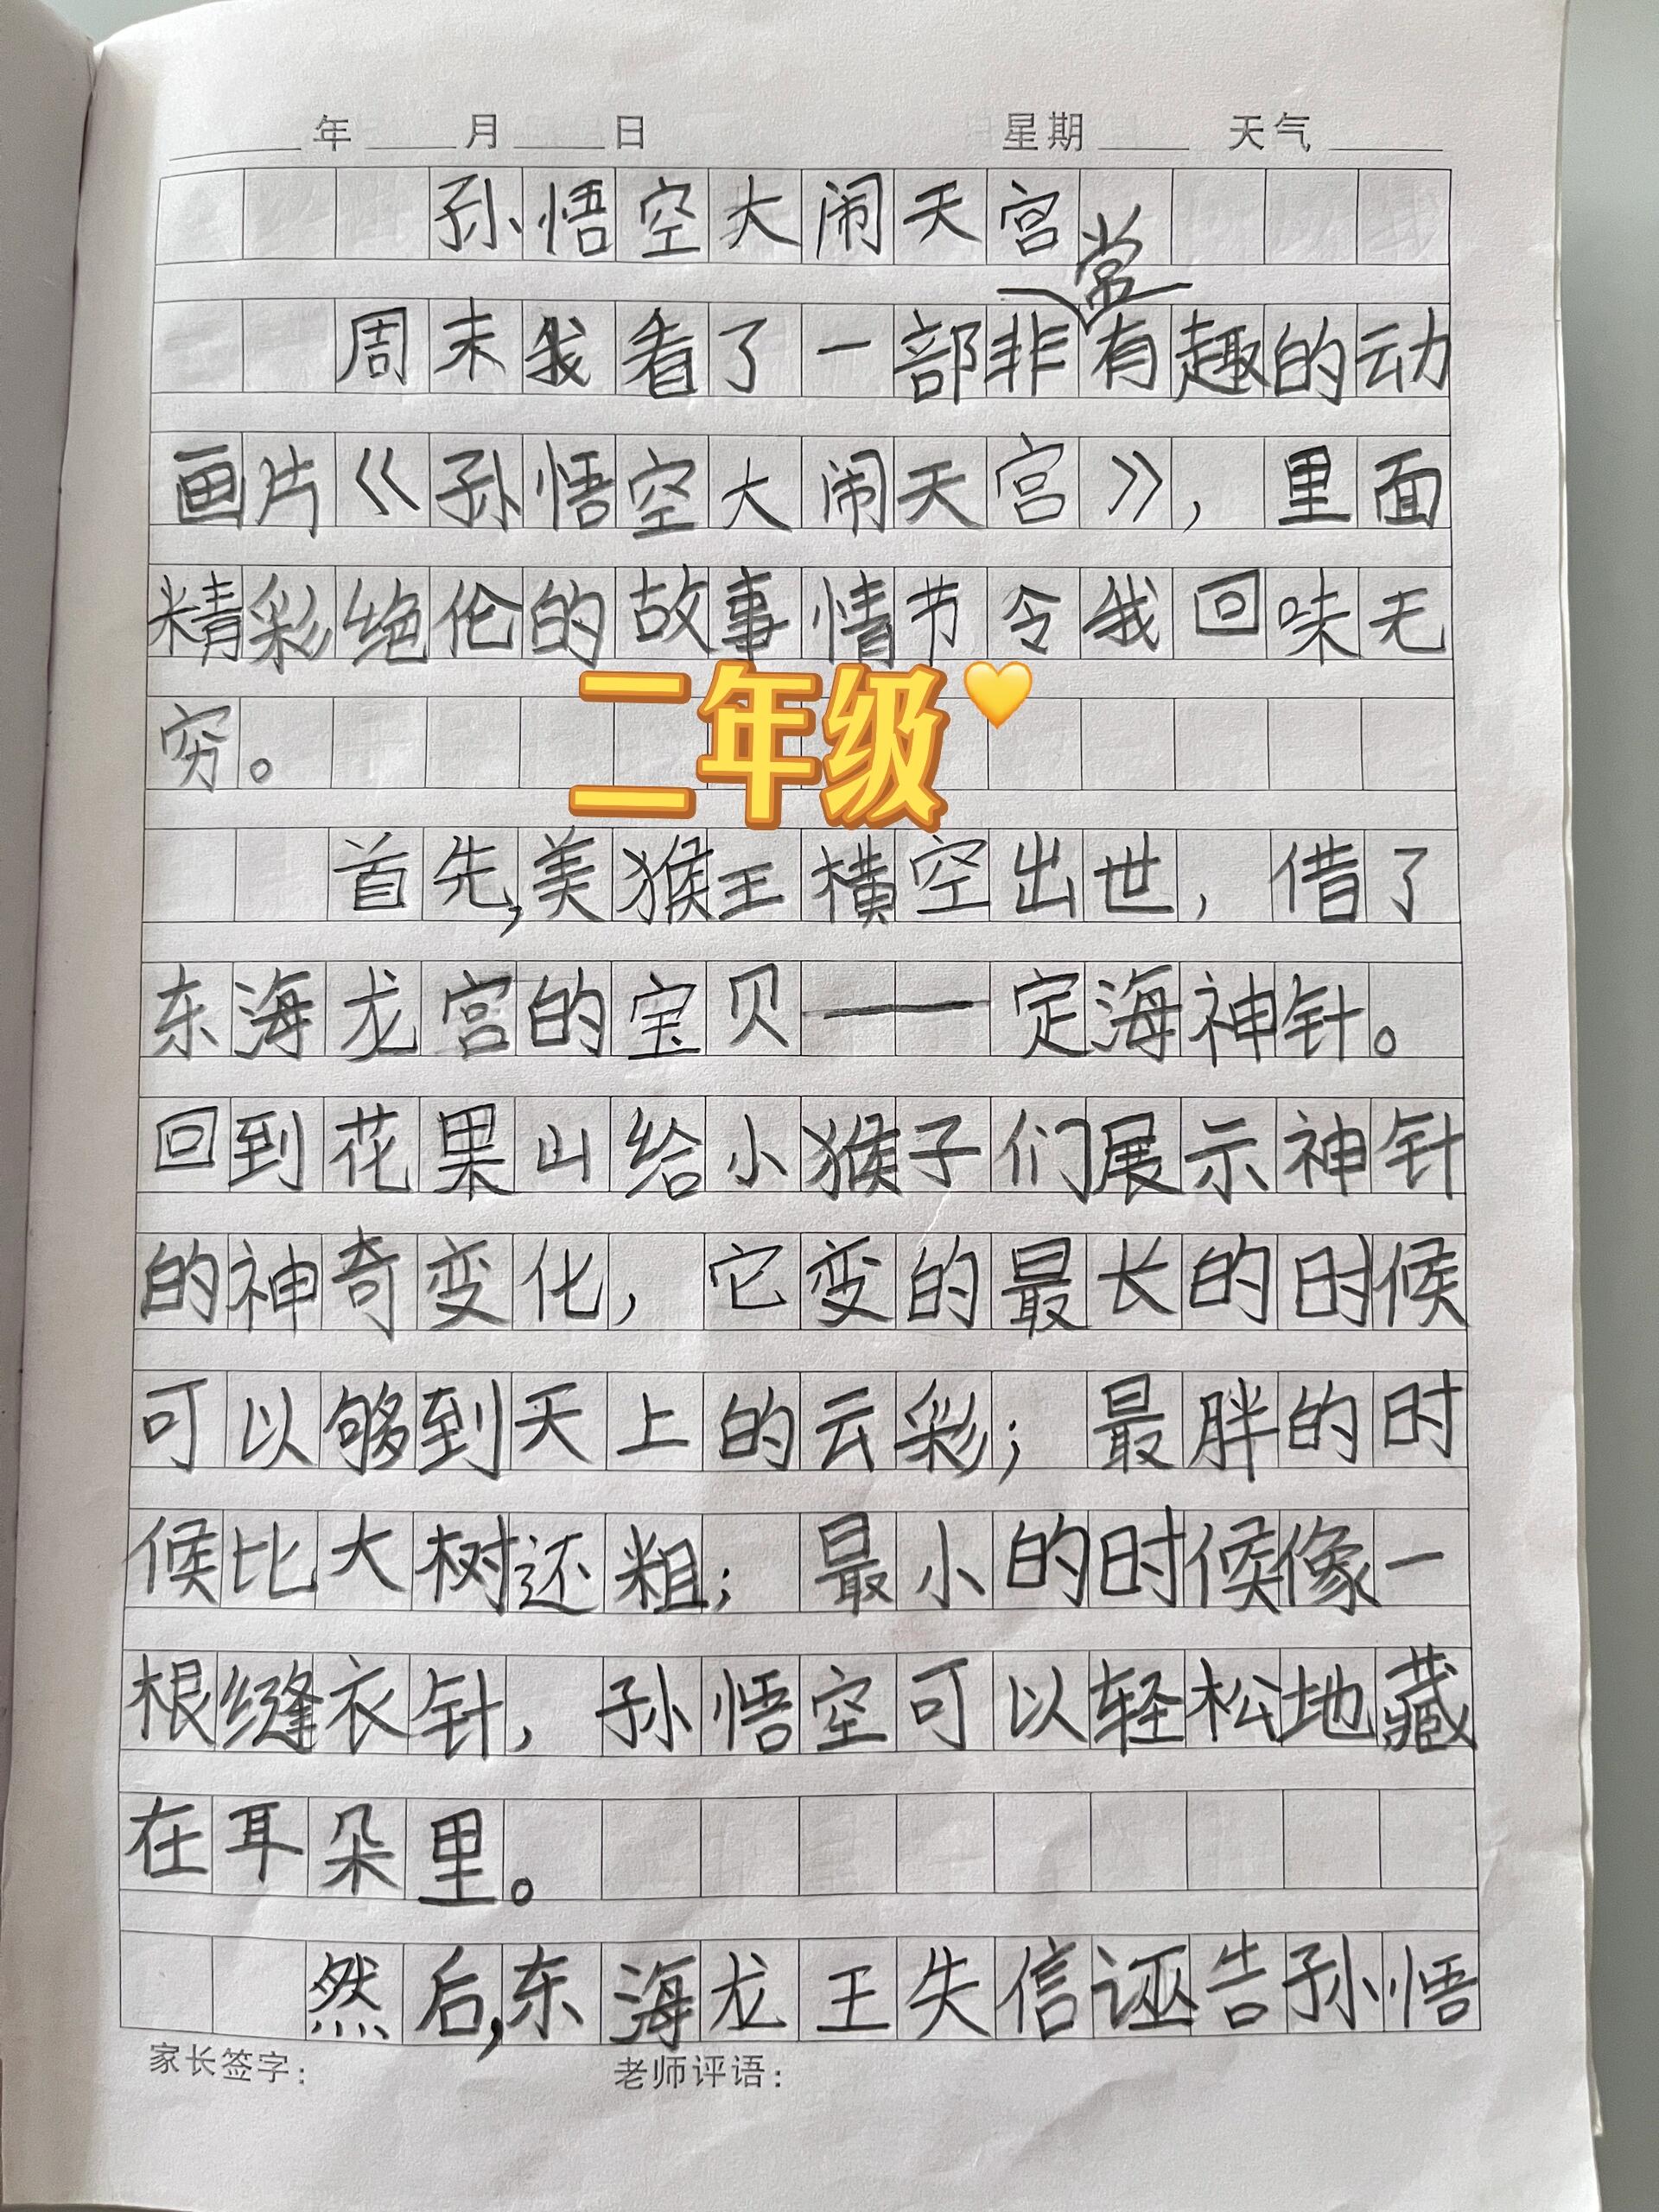 年 月 日 星期 天气
孙悟空大闹天宫
常
周末我看了一部非有趣的动
画片《孙悟空大闹天宫》，里面
精彩绝伦的故事情节令我回味无
穷。
二年级💛
首先,美猴王横空出世，借了
东海龙宫的宝贝——定海神针。
回到花果山给小猴子们展示神针
的神奇变化，它变的最长的时候
可以够到天上的云彩；最胖的时
候比大树还粗；最小的时候像一
根缝衣针，孙悟空可以轻松地藏
在耳朵里。
然后,东海龙王失信诬告孙悟
家长签字： 老师评语：